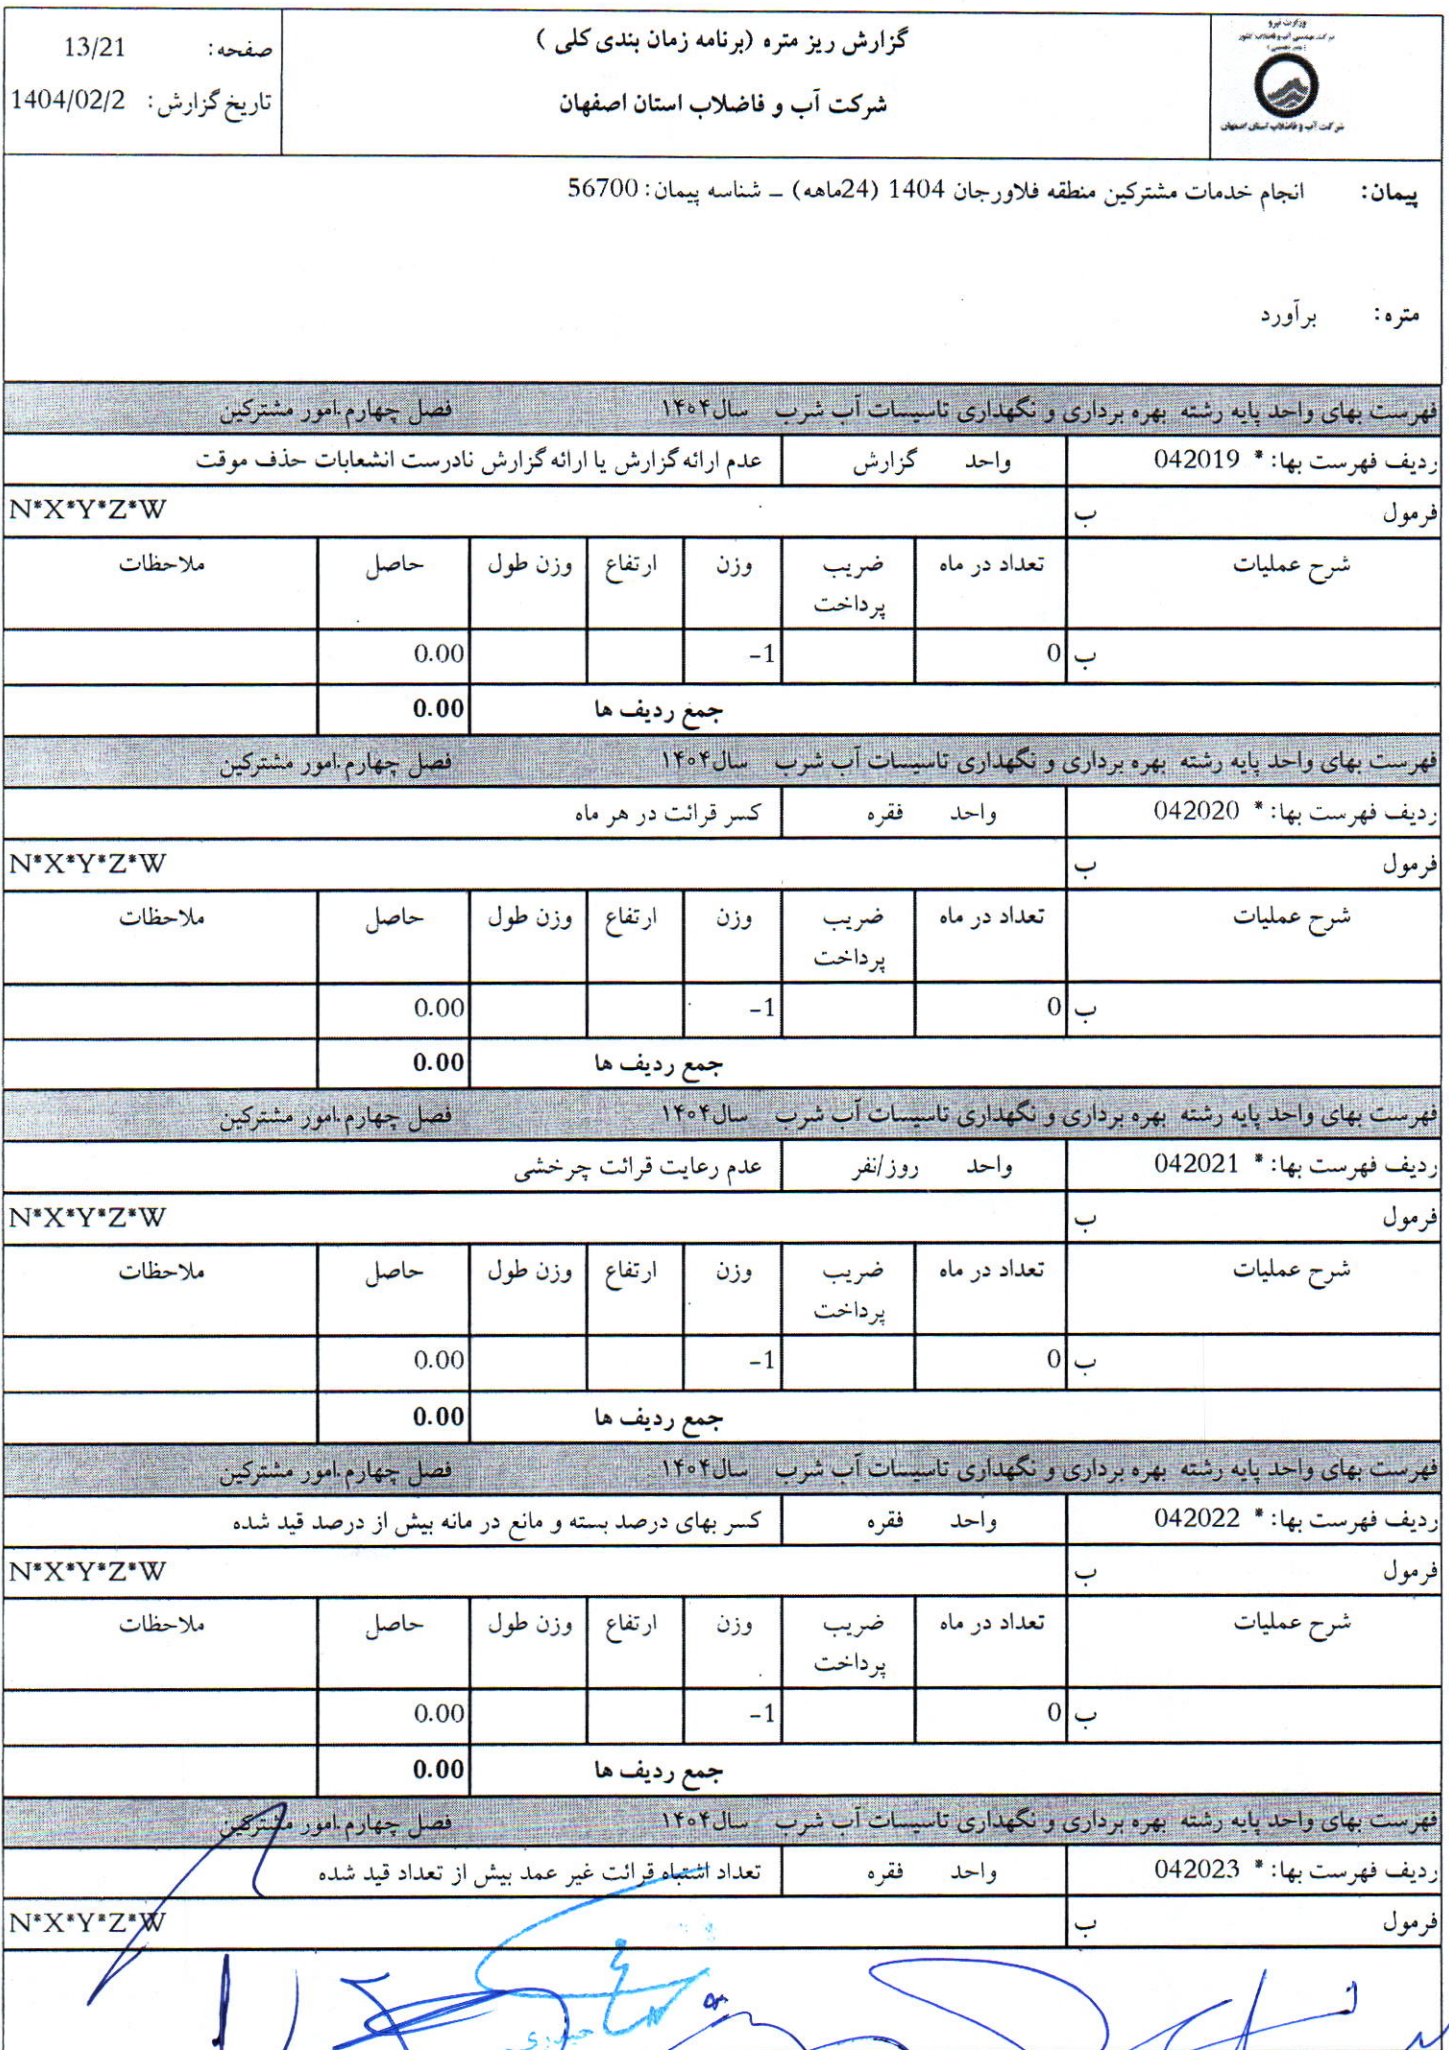 وزارت نیرو
شرکت مهندسی آب و فاضلاب کشور
شرکت آب و فاضلاب استان اصفهان
گزارش ریز متره (برنامه زمان بندی کلی )
شرکت آب و فاضلاب استان اصفهان
صفحه: 13/21
تاریخ گزارش: 1404/02/2
پیمان: انجام خدمات مشترکین منطقه فلاورجان 1404 (24ماهه) ـ شناسه پیمان: 56700
متره: برآورد
فهرست بهای واحد پایه رشته بهره برداری و نگهداری تاسیسات آب شرب سال۱۴۰۴ فصل چهارم.امور مشترکین
ردیف فهرست بها: * 042019 واحد گزارش عدم ارائه گزارش یا ارائه گزارش نادرست انشعابات حذف موقت
فرمول ب N*X*Y*Z*W
شرح عملیات تعداد در ماه ضریب پرداخت وزن ارتفاع وزن طول حاصل ملاحظات
ب 0 -1 0.00
جمع ردیف ها 0.00
فهرست بهای واحد پایه رشته بهره برداری و نگهداری تاسیسات آب شرب سال۱۴۰۴ فصل چهارم.امور مشترکین
ردیف فهرست بها: * 042020 واحد فقره کسر قرائت در هر ماه
فرمول ب N*X*Y*Z*W
شرح عملیات تعداد در ماه ضریب پرداخت وزن ارتفاع وزن طول حاصل ملاحظات
ب 0 -1 0.00
جمع ردیف ها 0.00
فهرست بهای واحد پایه رشته بهره برداری و نگهداری تاسیسات آب شرب سال۱۴۰۴ فصل چهارم.امور مشترکین
ردیف فهرست بها: * 042021 واحد روز/نفر عدم رعایت قرائت چرخشی
فرمول ب N*X*Y*Z*W
شرح عملیات تعداد در ماه ضریب پرداخت وزن ارتفاع وزن طول حاصل ملاحظات
ب 0 -1 0.00
جمع ردیف ها 0.00
فهرست بهای واحد پایه رشته بهره برداری و نگهداری تاسیسات آب شرب سال۱۴۰۴ فصل چهارم.امور مشترکین
ردیف فهرست بها: * 042022 واحد فقره کسر بهای درصد بسته و مانع در مانه بیش از درصد قید شده
فرمول ب N*X*Y*Z*W
شرح عملیات تعداد در ماه ضریب پرداخت وزن ارتفاع وزن طول حاصل ملاحظات
ب 0 -1 0.00
جمع ردیف ها 0.00
فهرست بهای واحد پایه رشته بهره برداری و نگهداری تاسیسات آب شرب سال۱۴۰۴ فصل چهارم.امور مشترکین
ردیف فهرست بها: * 042023 واحد فقره تعداد اشتباه قرائت غیر عمد بیش از تعداد قید شده
فرمول ب N*X*Y*Z*W